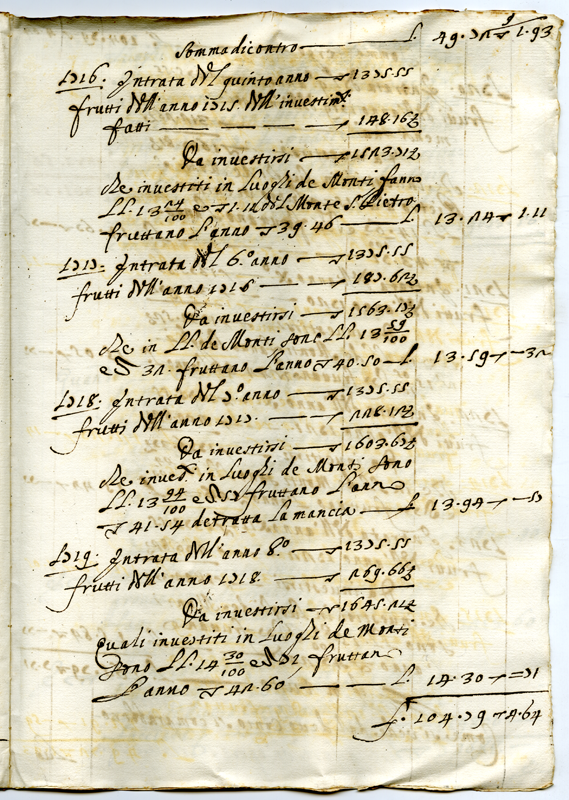 Somma di contro — L. 49.72 ▽ 1.93
1716. Intrata del quinto anno — ▽ 1375.55
frutti dell'anno 1715. dell'investim.ti
fatti — — — — ▽ 148.16½
Da investirsi — ▽ 1523.71½
Re investiti in Luoghi de Monti fanno
LL. 13 24/100 e ▽ 1.11 del Monte S. Pietro
fruttano l'anno ▽ 39.46 — L. 13.24 ▽ 1.11
1717. Intrata del 6.º anno — ▽ 1375.55
frutti dell'anno 1716 — ▽ 187.62½
Da investirsi — ▽ 1563.17½
Re in LL. de Monti sono LL. 13 59/100
e ▽ 32. fruttano l'anno ▽ 40.50 — L. 13.59 ▽ —32
1718. Intrata del 7.º anno — ▽ 1375.55
frutti dell'anno 1717. — ▽ 228.12½
Da investirsi — ▽ 1603.67½
Re inves.ti in Luoghi de Monti sono
LL. 13 94/100 e ▽ 57 fruttano l'anno
▽ 41.54 detratta la mancia — L. 13.94 ▽ —57
1719. Intrata dell'anno 8.º — ▽ 1375.55
frutti dell'anno 1718. — ▽ 269.66½
Da investirsi — ▽ 1645.21½
Quali investiti in Luoghi de Monti
sono LL. 14 30/100 e ▽ 71, fruttano
l'anno ▽ 42.60 — L. 14.30 ▽ —71
L. 104.79 ▽ 4.64